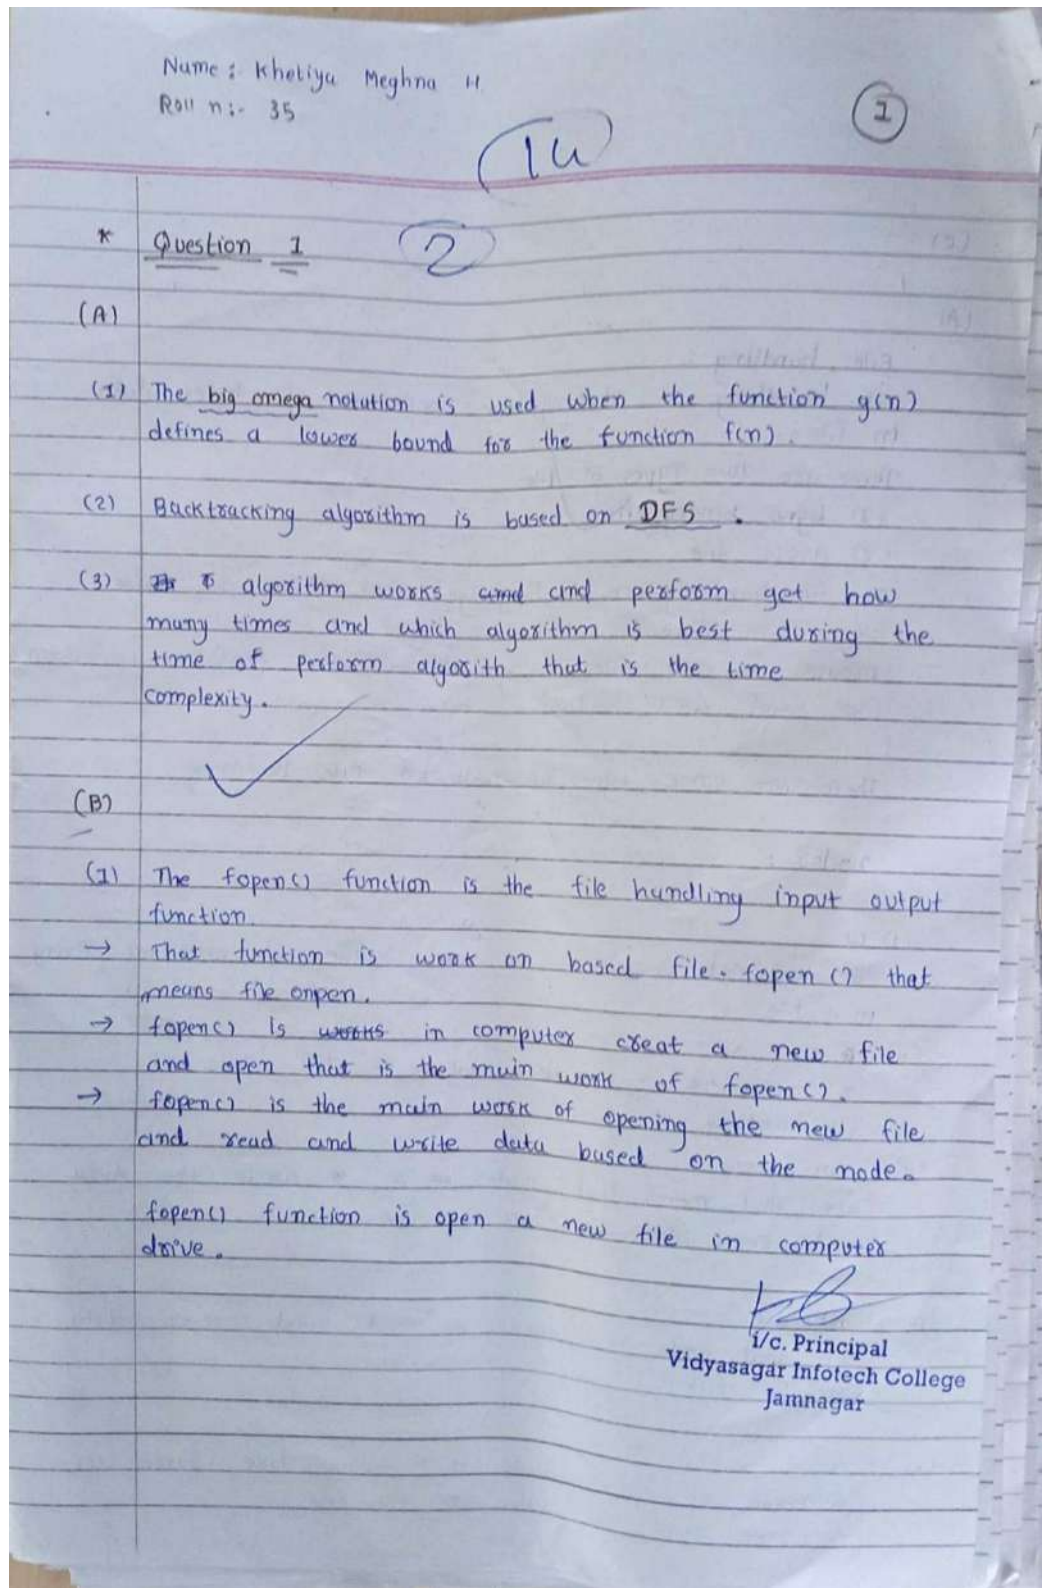 Name : Khetiya Meghna H
Roll n:- 35
1
14
* Question 1
2
(A)
(1) The big omega notation is used when the function g(n)
defines a lower bound for the function f(n).
(2) Backtracking algorithm is based on DFS .
(3) algorithm works and and perform get how
many times and which algorithm is best during the
time of perform algorith that is the time
complexity.
(B)
(1) The fopen() function is the file handling input output
function.
→ That function is work on based file. fopen () that
means file onpen.
→ fopen() is works in computer creat a new file
and open that is the main work of fopen().
→ fopen() is the main work of opening the new file
and read and write data based on the mode.
fopen() function is open a new file in computer
drive.
i/c. Principal
Vidyasagar Infotech College
Jamnagar